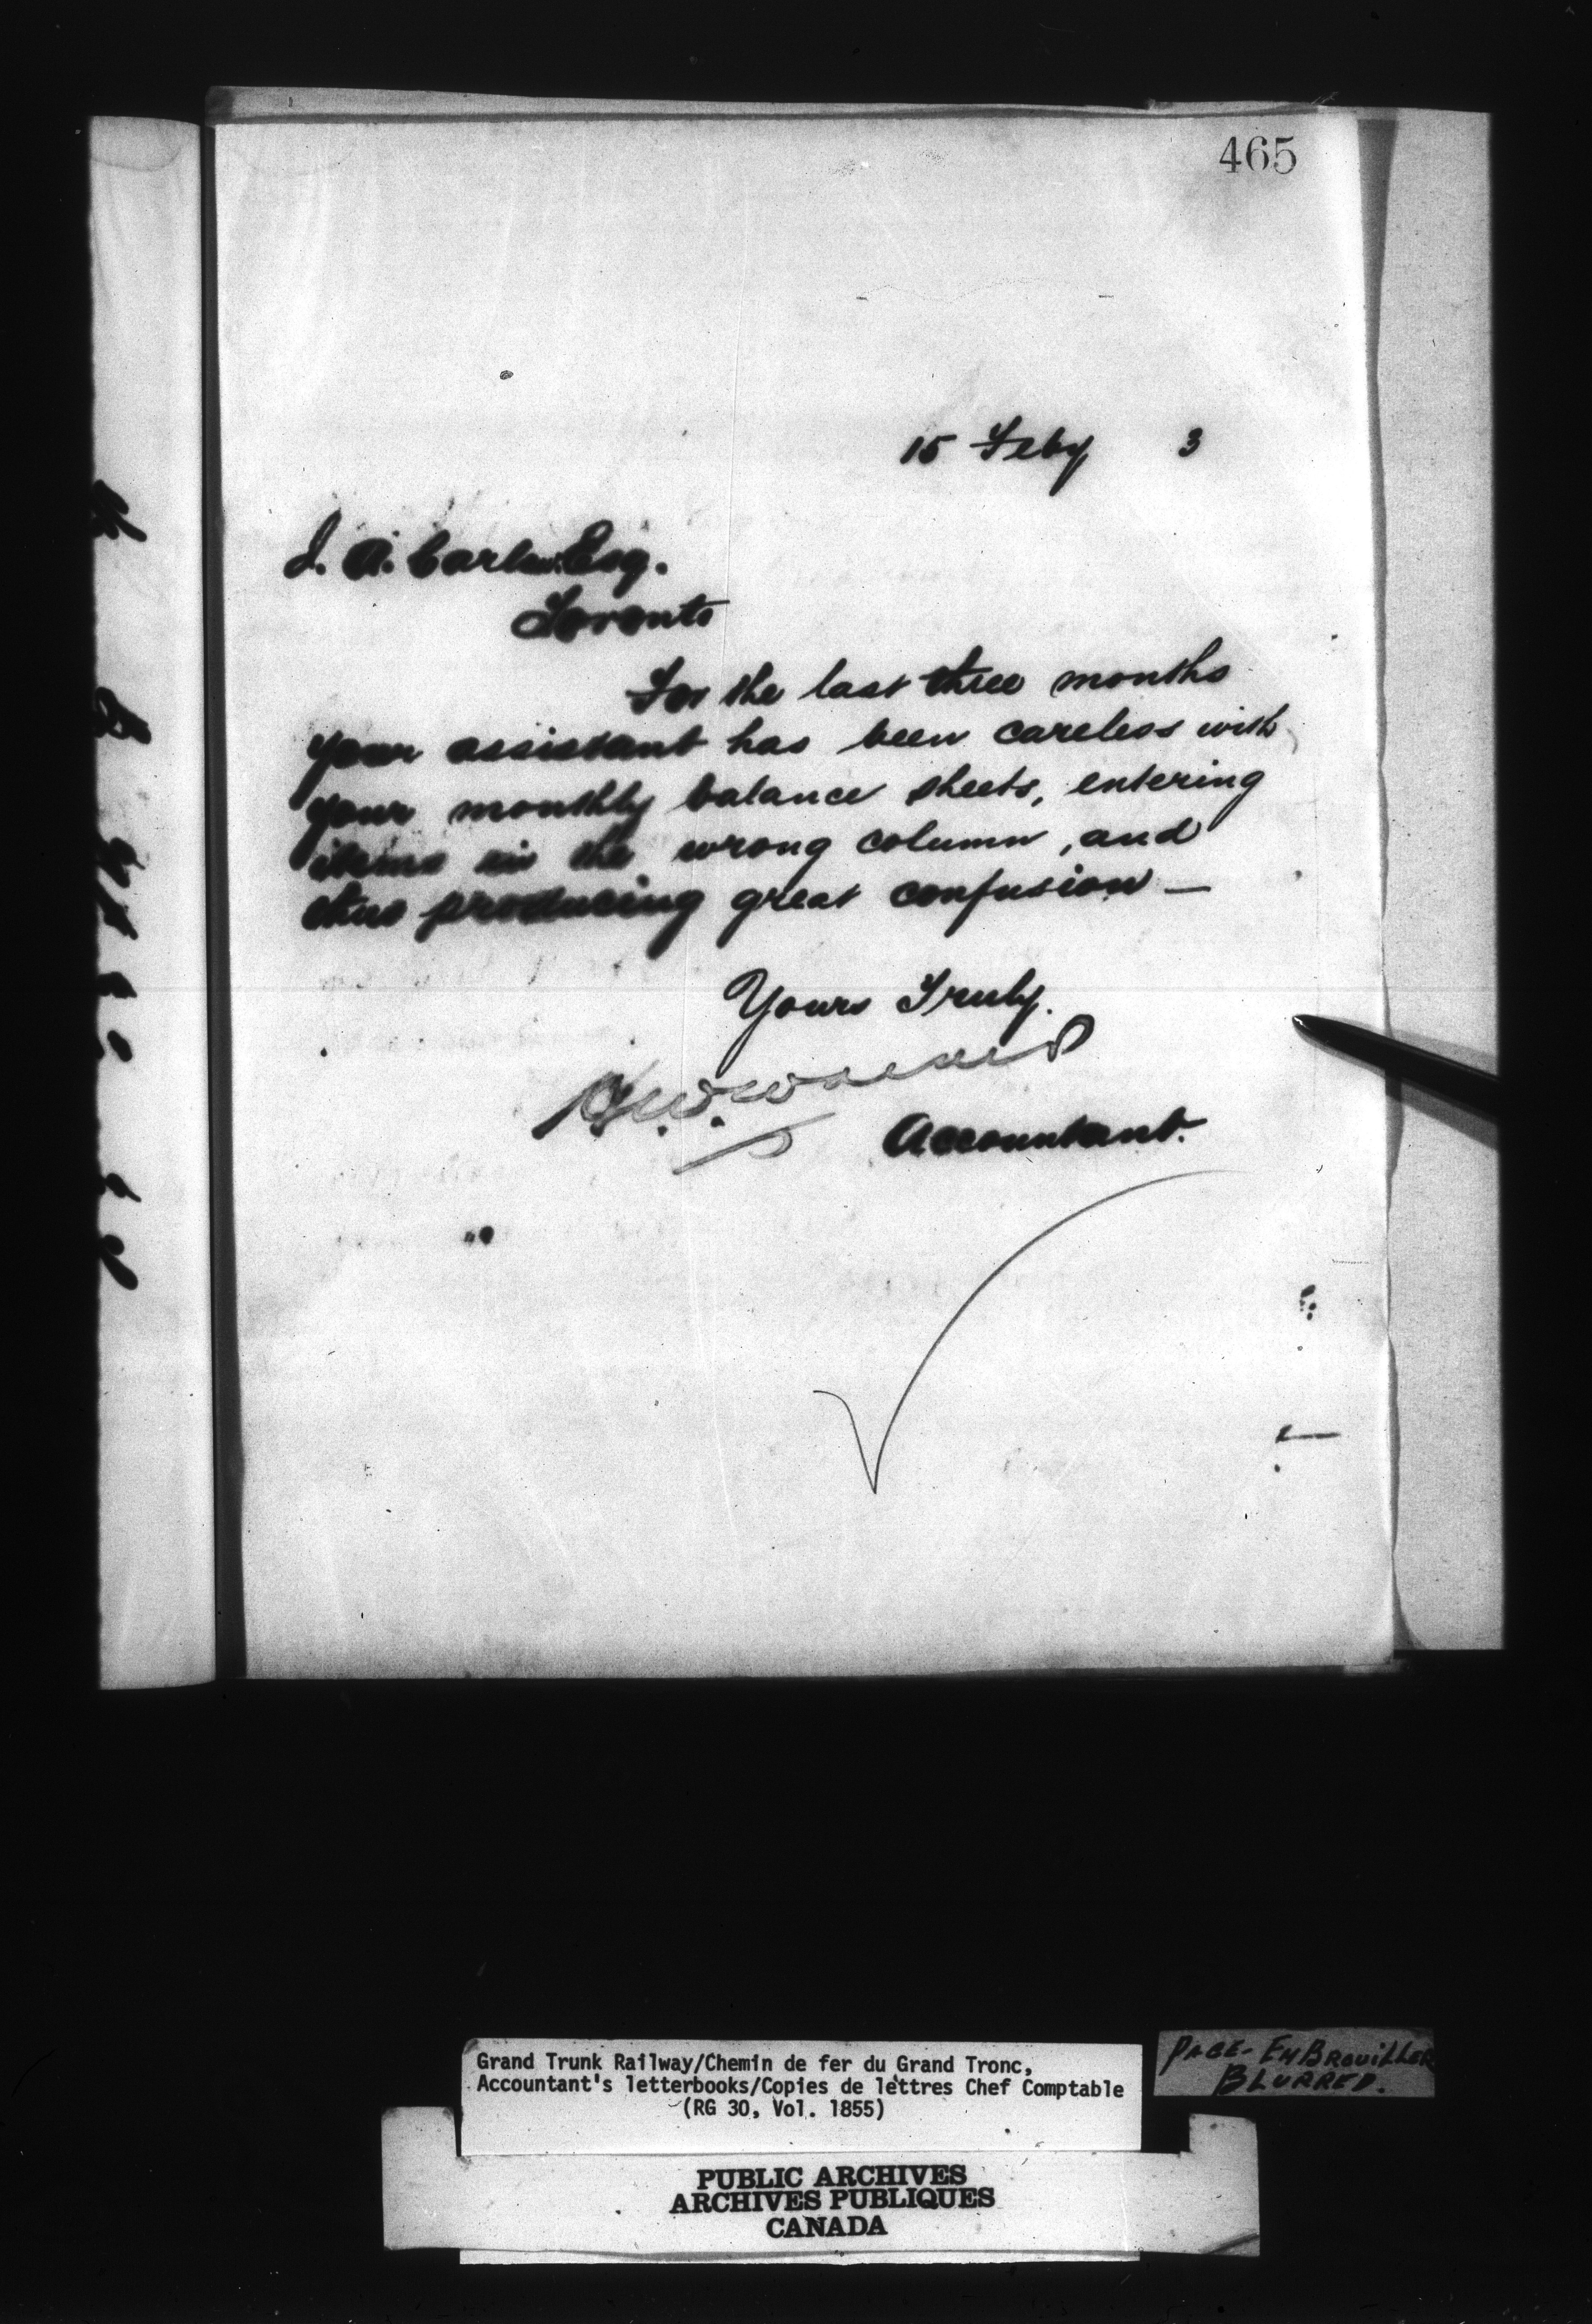 465
15 Feby 3
J. A. Carlaw Esq.
Toronto
For the last three months
your assistant has been careless with
your monthly balance sheets, entering
items in the wrong column, and
thus producing great confusion —
Yours Truly.
Accountant.
Grand Trunk Railway/Chemin de fer du Grand Tronc,
Accountant's letterbooks/Copies de lettres Chef Comptable
(RG 30, Vol. 1855)
PAGE - EMBROUILLER
BLURRED.
PUBLIC ARCHIVES
ARCHIVES PUBLIQUES
CANADA